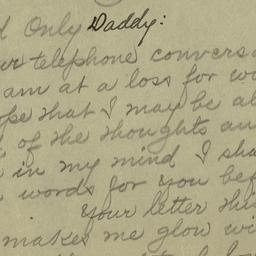 d Only Daddy:
ur telephone conversa
am at a loss for wo
ope that I may be al
of the thoughts an
in my mind I sha
words for you bef
Your letter this
makes me glow wi